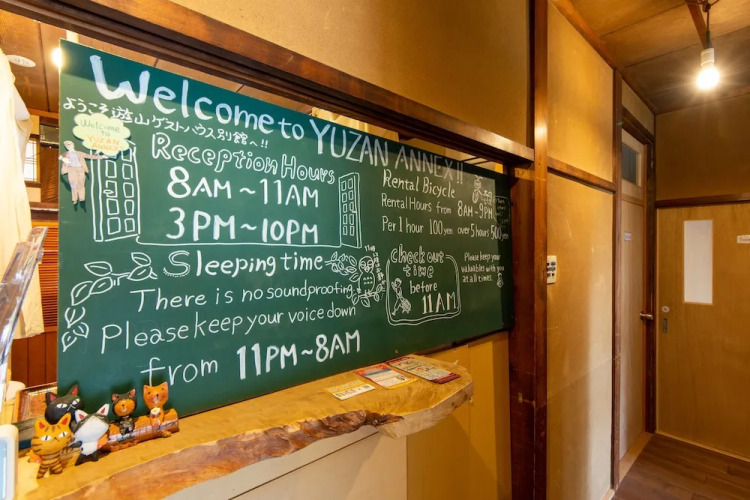 Welcome to YUZAN ANNEX!!
ようこそ遊山ゲストハウス別館へ!!
Welcome
TO
YUZAN
ANNEX
Reception Hours
8AM~11AM
3PM~10PM
Sleeping time
There is no soundproofing.
Please keep your voice down
from 11PM~8AM
Rental Bicycle
Rental Hours from 8AM~9PM
Per 1 hour 100 yen over 5 hours 500 yen
check out
time
before
11AM
Please keep your
valuables with you
at all times.